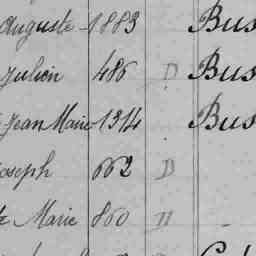 Auguste 1883 Bus
Julien 486 D Bus
Jean Marie 1314 Bus
Joseph 662 D
Marie 860 D